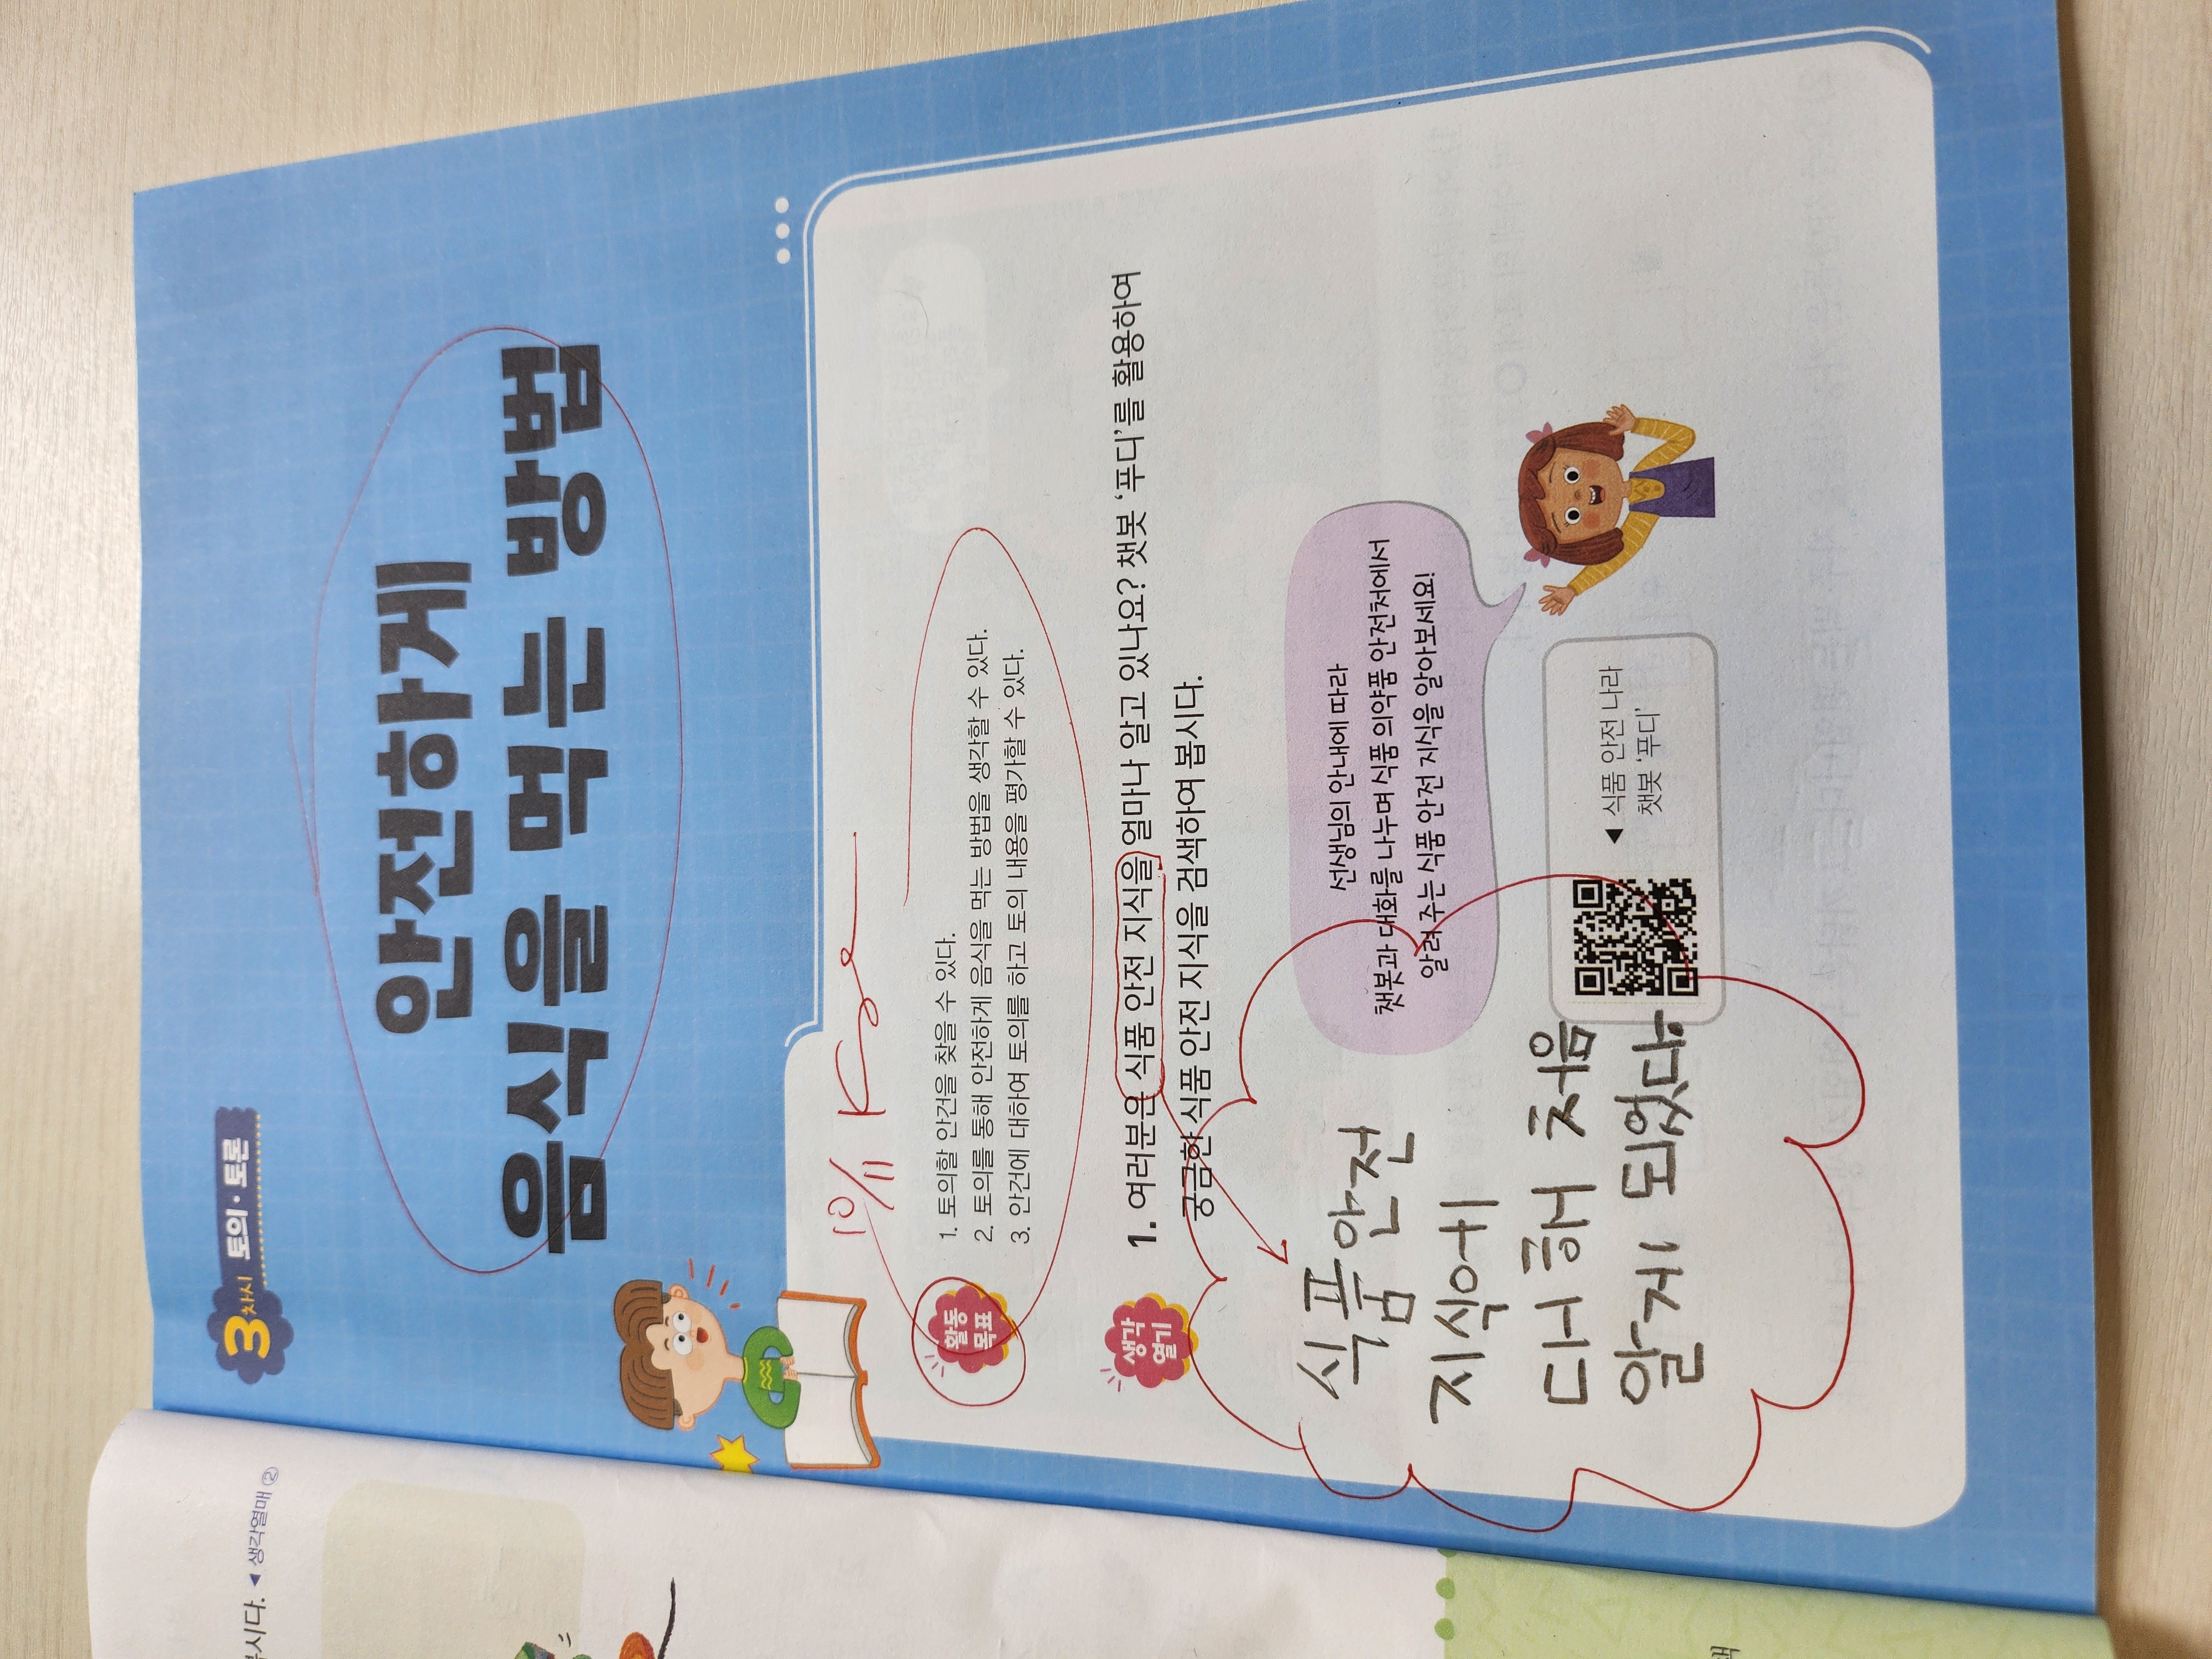 부시다. ◀ 생각열매 ②
3차시 토의·토론
안전하게
음식을 먹는 방법
10/11
활동
목표
1. 토의할 안건을 찾을 수 있다.
2. 토의를 통해 안전하게 음식을 먹는 방법을 생각할 수 있다.
3. 안건에 대하여 토의를 하고 토의 내용을 평가할 수 있다.
생각
열기
1. 여러분은 식품 안전 지식을 얼마나 알고 있나요? 챗봇 ‘푸디’를 활용하여
궁금한 식품 안전 지식을 검색하여 봅시다.
선생님의 안내에 따라
챗봇과 대화를 나누며 식품 의약품 안전처에서
알려 주는 식품 안전 지식을 알아보세요!
◀ 식품 안전 나라
챗봇 ‘푸디’
식품안전
지식에
대해 처음
알게 되었다.